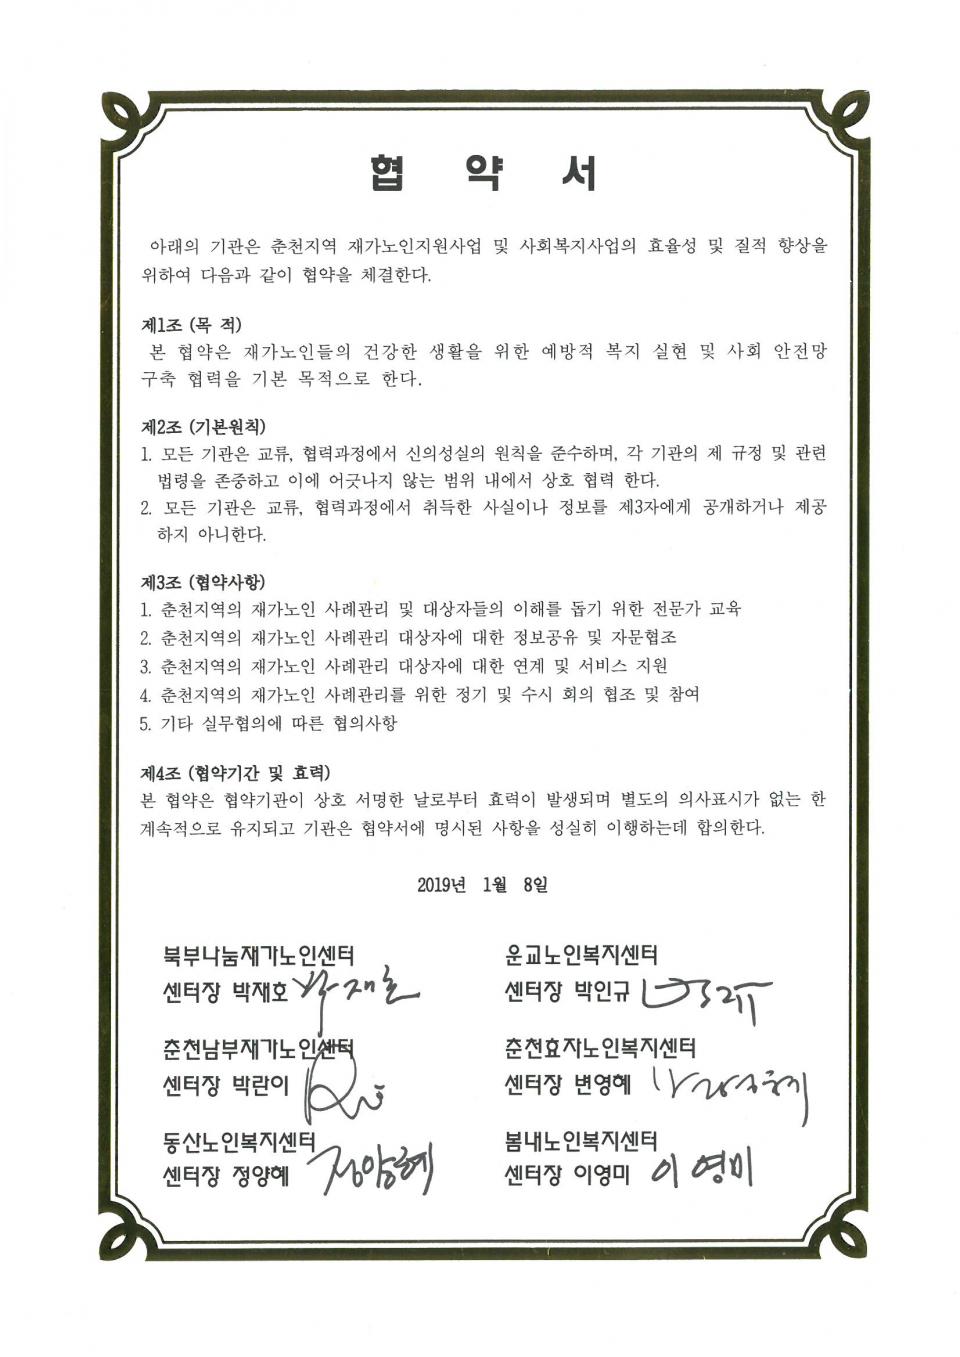 협 약 서
아래의 기관은 춘천지역 재가노인지원사업 및 사회복지사업의 효율성 및 질적 향상을
위하여 다음과 같이 협약을 체결한다.
제1조 (목 적)
본 협약은 재가노인들의 건강한 생활을 위한 예방적 복지 실현 및 사회 안전망
구축 협력을 기본 목적으로 한다.
제2조 (기본원칙)
1. 모든 기관은 교류, 협력과정에서 신의성실의 원칙을 준수하며, 각 기관의 제 규정 및 관련
법령을 존중하고 이에 어긋나지 않는 범위 내에서 상호 협력 한다.
2. 모든 기관은 교류, 협력과정에서 취득한 사실이나 정보를 제3자에게 공개하거나 제공
하지 아니한다.
제3조 (협약사항)
1. 춘천지역의 재가노인 사례관리 및 대상자들의 이해를 돕기 위한 전문가 교육
2. 춘천지역의 재가노인 사례관리 대상자에 대한 정보공유 및 자문협조
3. 춘천지역의 재가노인 사례관리 대상자에 대한 연계 및 서비스 지원
4. 춘천지역의 재가노인 사례관리를 위한 정기 및 수시 회의 협조 및 참여
5. 기타 실무협의에 따른 협의사항
제4조 (협약기간 및 효력)
본 협약은 협약기관이 상호 서명한 날로부터 효력이 발생되며 별도의 의사표시가 없는 한
계속적으로 유지되고 기관은 협약서에 명시된 사항을 성실히 이행하는데 합의한다.
2019년 1월 8일
북부나눔재가노인센터 운교노인복지센터
센터장 박재호 박재호 센터장 박인규
춘천남부재가노인센터 춘천효자노인복지센터
센터장 박란이 센터장 변영혜
동산노인복지센터 봄내노인복지센터
센터장 정양혜 정양혜 센터장 이영미 이영미